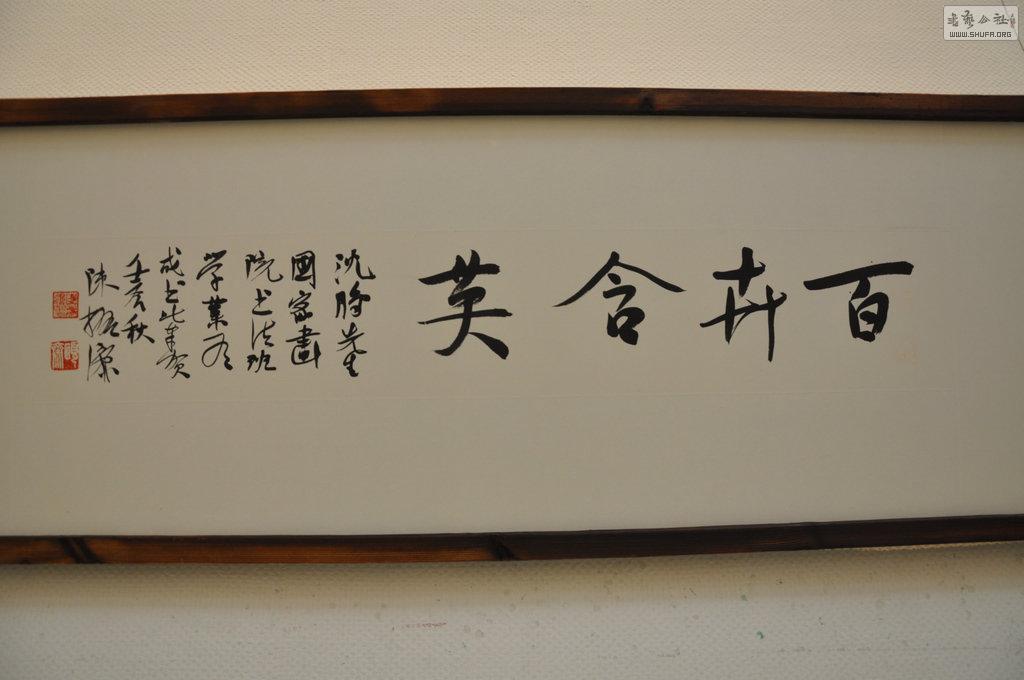 百卉含英
沈鵬先生
國家畫
院书法班
学業有
成书此奉賀
壬辰秋
陳振濂
书艺公社
WWW.SHUFA.ORG